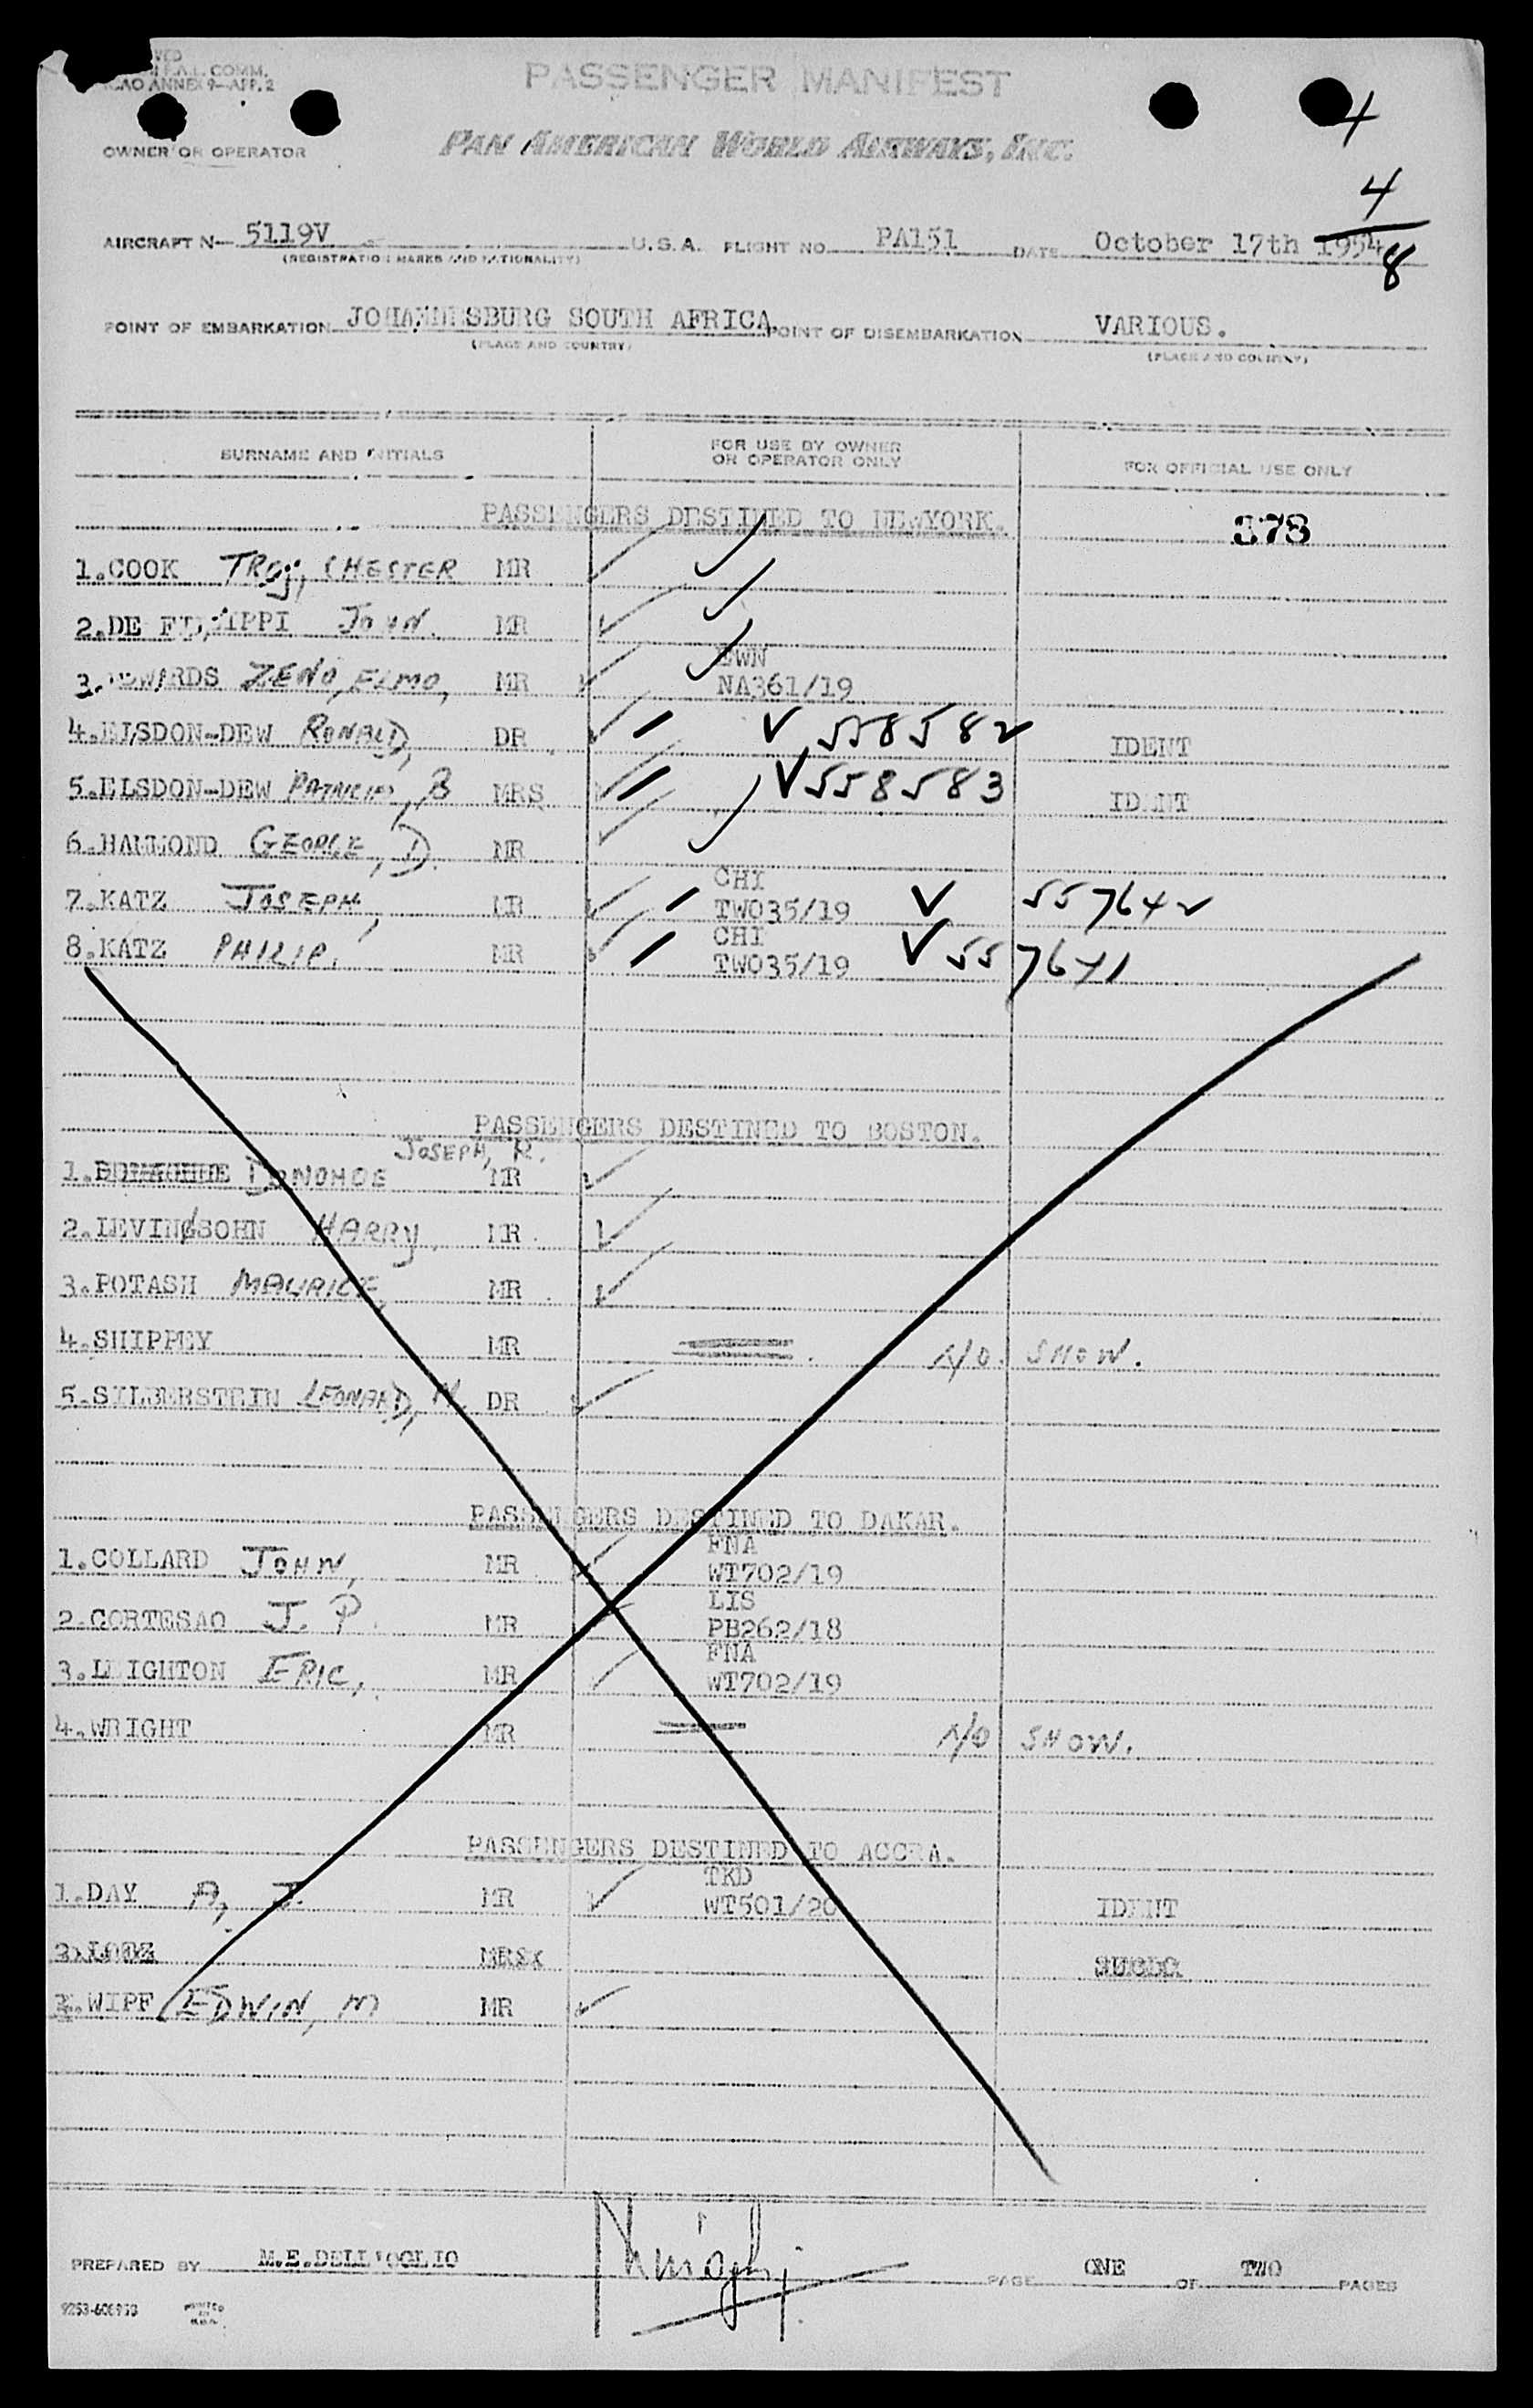 F.A.L. COMM.
ICAO ANNEX 9—APP. 2
PASSENGER MANIFEST
OWNER OR OPERATOR PAN AMERICAN WORLD AIRWAYS, INC.
4
8
AIRCRAFT N— 5119V U.S.A. FLIGHT NO. PA151 DATE October 17th 1954
(REGISTRATION MARKS AND NATIONALITY)
POINT OF EMBARKATION JOHANNESBURG SOUTH AFRICA POINT OF DISEMBARKATION VARIOUS.
(PLACE AND COUNTRY) (PLACE AND COUNTRY)
SURNAME AND INITIALS FOR USE BY OWNER OR OPERATOR ONLY FOR OFFICIAL USE ONLY
PASSENGERS DESTINED TO NEWYORK. 378
1.COOK TROY, CHESTER MR
2.DE FILIPPI JOHN. MR
EWN
3.EDWARDS ZENO, ELMO, MR NA361/19
4.ELSDON-DEW RONALD, DR 558582 IDENT
5.ELSDON-DEW PATRICIA, B MRS 558583 IDENT
6.HAMMOND GEORGE, D. MR
CHI
7.KATZ JOSEPH, MR TW035/19 557642
CHI
8.KATZ PHILIP, MR TW035/19 557641
PASSENGERS DESTINED TO BOSTON.
JOSEPH, R.
1. DONOHOE MR
2.LEVINSOHN HARRY, MR
3.POTASH MAURICE, MR
4.SHIPPEY MR NO SHOW.
5.SILBERSTEIN LEONARD, N. DR
PASSENGERS DESTINED TO DAKAR.
FNA
1.COLLARD JOHN, MR WT702/19
LIS
2.CORTESAO J. P. MR PB262/18
FNA
3.LEIGHTON ERIC, MR WT702/19
4.WRIGHT MR NO SHOW.
PASSENGERS DESTINED TO ACCRA.
TKD
1.DAY A, J. MR WT501/20 IDENT
MRS
2.WIPF EDWIN, M MR
PREPARED BY M.E.DELL'OGLIO PAGE ONE OF TWO PAGES
PRINTED
IN
U.S.A.